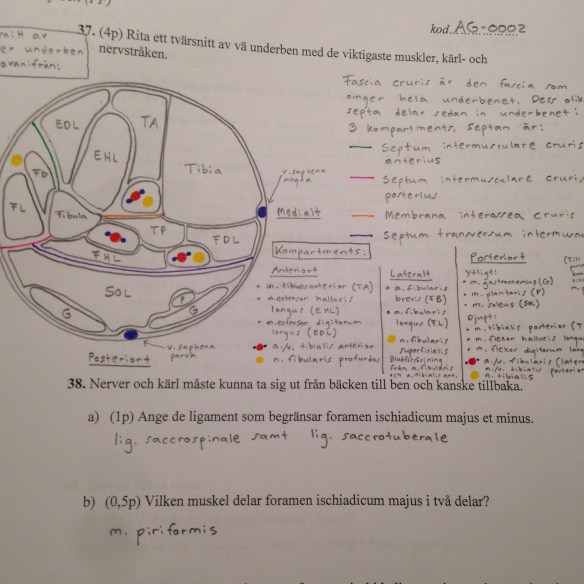 kod. AG-0002
37. (4p) Rita ett tvärsnitt av vä underben med de viktigaste muskler, kärl- och
nervstråken.
av
er underben
ovanifrån:
Fascia cruris är den fascia som
omger hela underbenet. Dess olik
septa delar sedan in underbenet i
3 kompartments, septan är:
Septum intermusculare cruris
anterius
Septum intermusculare cruris
posterius
Membrana interossea cruris
Septum transversum intermuscu
EDL
TA
EHL
Tibia
FL
Fibula
TP
FDL
FHL
SOL
G
P
G
v. saphena
magna
Medialt
v. saphena
parva
Posteriort
Kompartments:
Anteriort
• m. tibialis anterior (TA)
• m. extensor hallucis
longus (EHL)
• m. extensor digitorum
longus (EDL)
a./v. tibialis anterior
n. fibularis profundus
Lateralt
• m. fibularis
brevis (FB)
• m. fibularis
longus (FL)
n. fibularis
superficialis
Blodförsörjning
från a. fibularis
och a. tibialis ant.
Posteriort
Ytligt:
• m. gastrocnemius (G)
• m. plantaris (P)
• m. soleus (SOL)
Djupt:
• m. tibialis posterior (T
• m. flexor hallucis longus
• m. flexor digitorum long
a./v. fibularis (latera
a./v. tibialis posterior
n. tibialis
38. Nerver och kärl måste kunna ta sig ut från bäcken till ben och kanske tillbaka.
a) (1p) Ange de ligament som begränsar foramen ischiadicum majus et minus.
lig. saccrospinale samt lig. saccrotuberale
b) (0,5p) Vilken muskel delar foramen ischiadicum majus i två delar?
m. piriformis